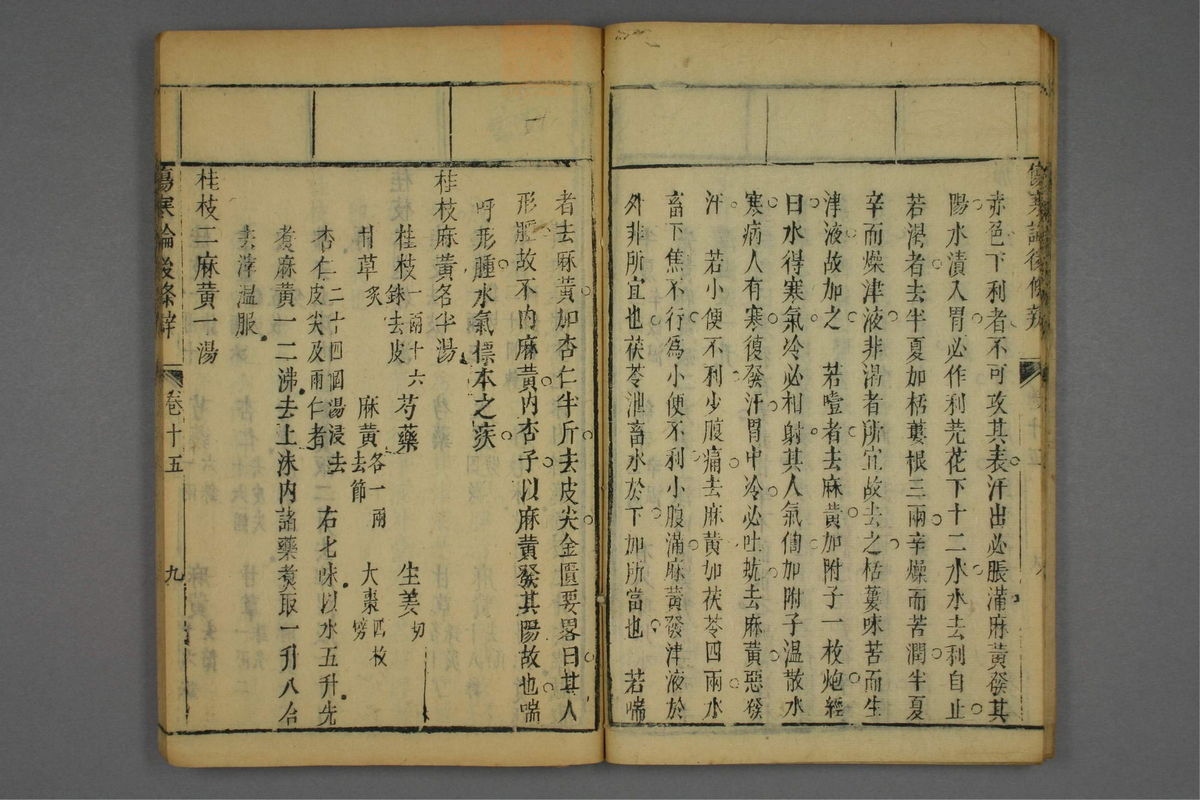 傷寒論後條辨
卷十五
赤色下利者不可攻其表汗出必脹滿麻黃發其
陽水漬入胃必作利芫花下十二水水去利自止
若渴者去半夏加栝蔞根三兩辛燥而苦潤半夏
辛而燥津液非渴者所宜故去之栝蔞味苦而生
津液故加之　若噎者去麻黃加附子一枚炮經
曰水得寒氣冷必相射其人氣䭇加附子温散水
寒病人有寒復發汗胃中冷必吐蚘去麻黃惡發
汗　若小便不利少腹痛去麻黃加茯苓四兩水
畜下焦不行為小便不利小腹滿麻黃發津液於
外非所宜也茯苓泄畜水於下加所當也　若喘
者去麻黃加杏仁半斤去皮尖金匱要畧曰其人
形腫故不内麻黃内杏子以麻黃發其陽故也喘
呼形腫水氣標本之疾
桂枝麻黃各半湯
桂枝一兩十六銖去皮　芍藥　生姜切
甘草炙　麻黃各一兩去節　大棗四枚劈
杏仁二十四個湯浸去皮尖及兩仁者　右七味以水五升先
煮麻黃一二沸去上沫内諸藥煑取一升八合
去滓温服
桂枝二麻黃一湯
傷寒論後條辨
卷十五
九